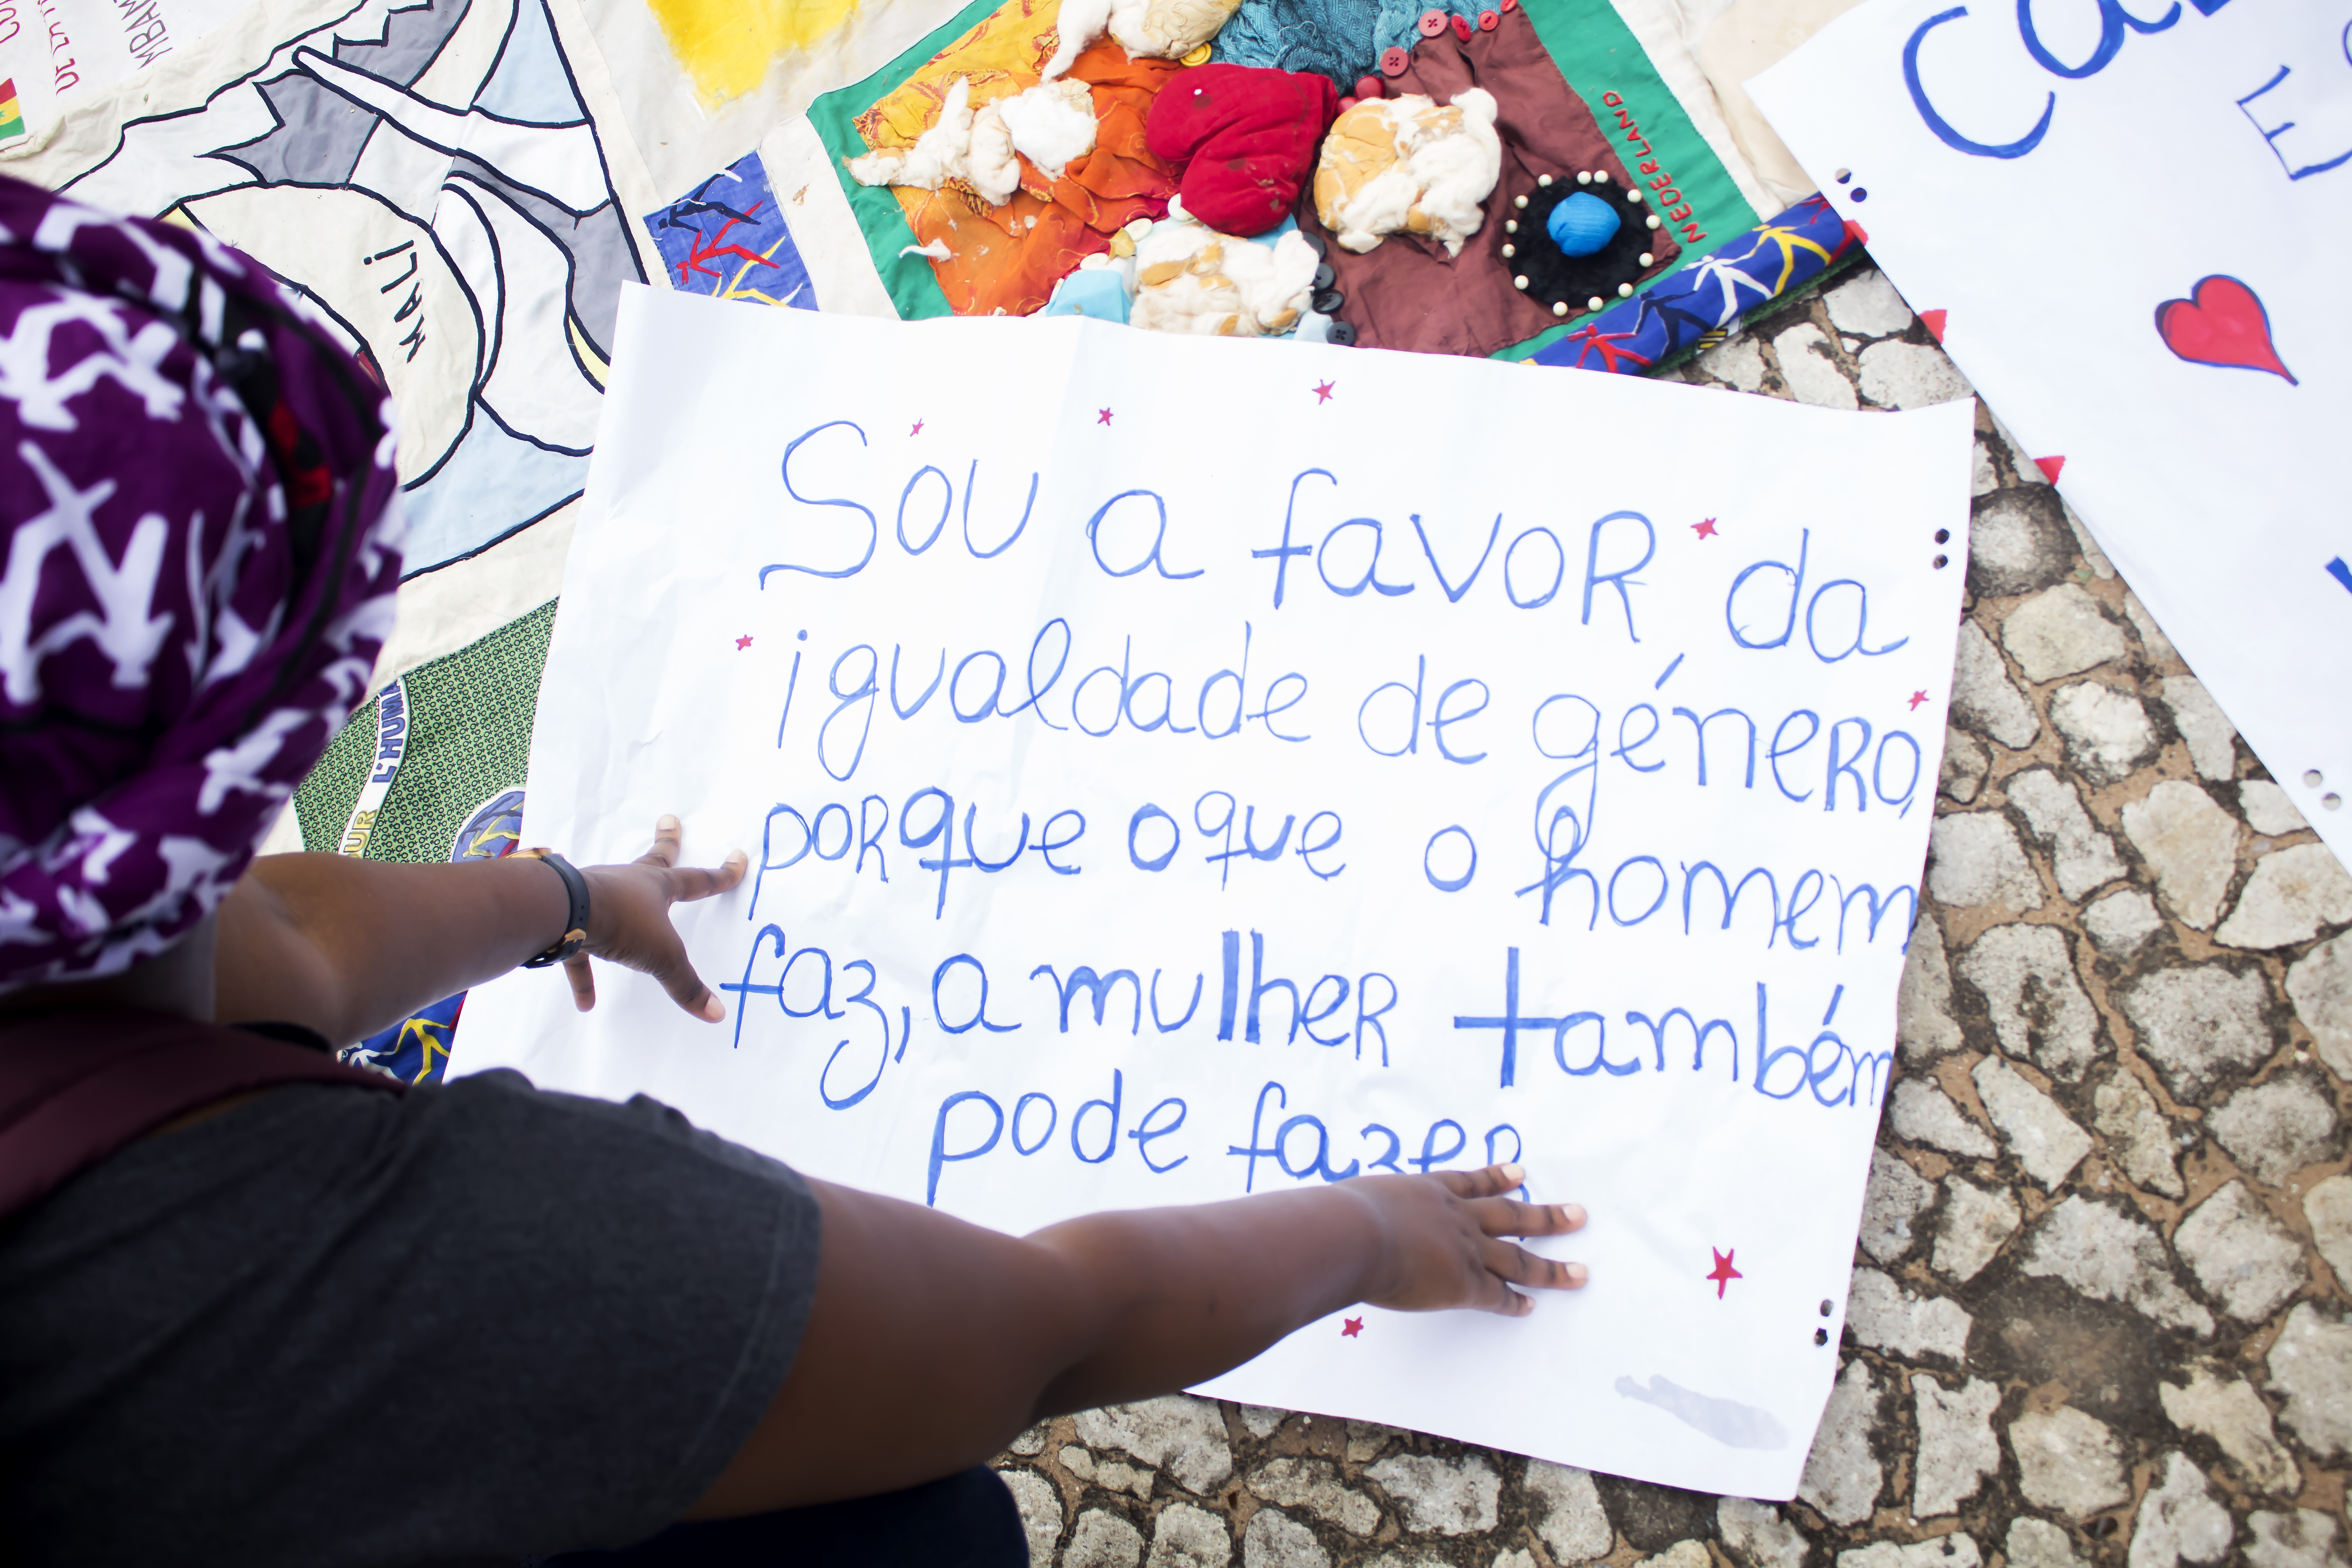 MALI
NEDERLAND
L'HUMA
Sou a favoR da
igualdade de géneRo,
poRque o que o homem
faz, a mulheR também
pode fazeR